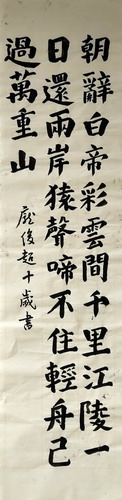 朝辭白帝彩雲間千里江陵一
日還兩岸猿聲啼不住輕舟已
過萬重山
龐俊超十歲書